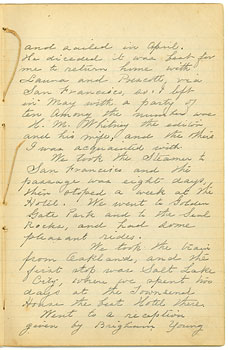 and sailed in April.
He decided it was best for
me to return home with
Laura and Prescott, via
San Francisco, so I left
in May with a party of
ten Among the number was
H. M. Whitney the
and his wife, and the
I was acquainted with
We took the Steamer to
San Francisco and the
passage was eight days,
then stoped a week at the
Hotel. We went to Golden
Gate Park and to the Seal
Rocks, and had some
pleasant rides.
We took the train
from Oakland, and the
first stop was Salt Lake
City, where we spent two
days at the Townsend
House the best Hotel there.
Went to a reception
given by Brigham Young